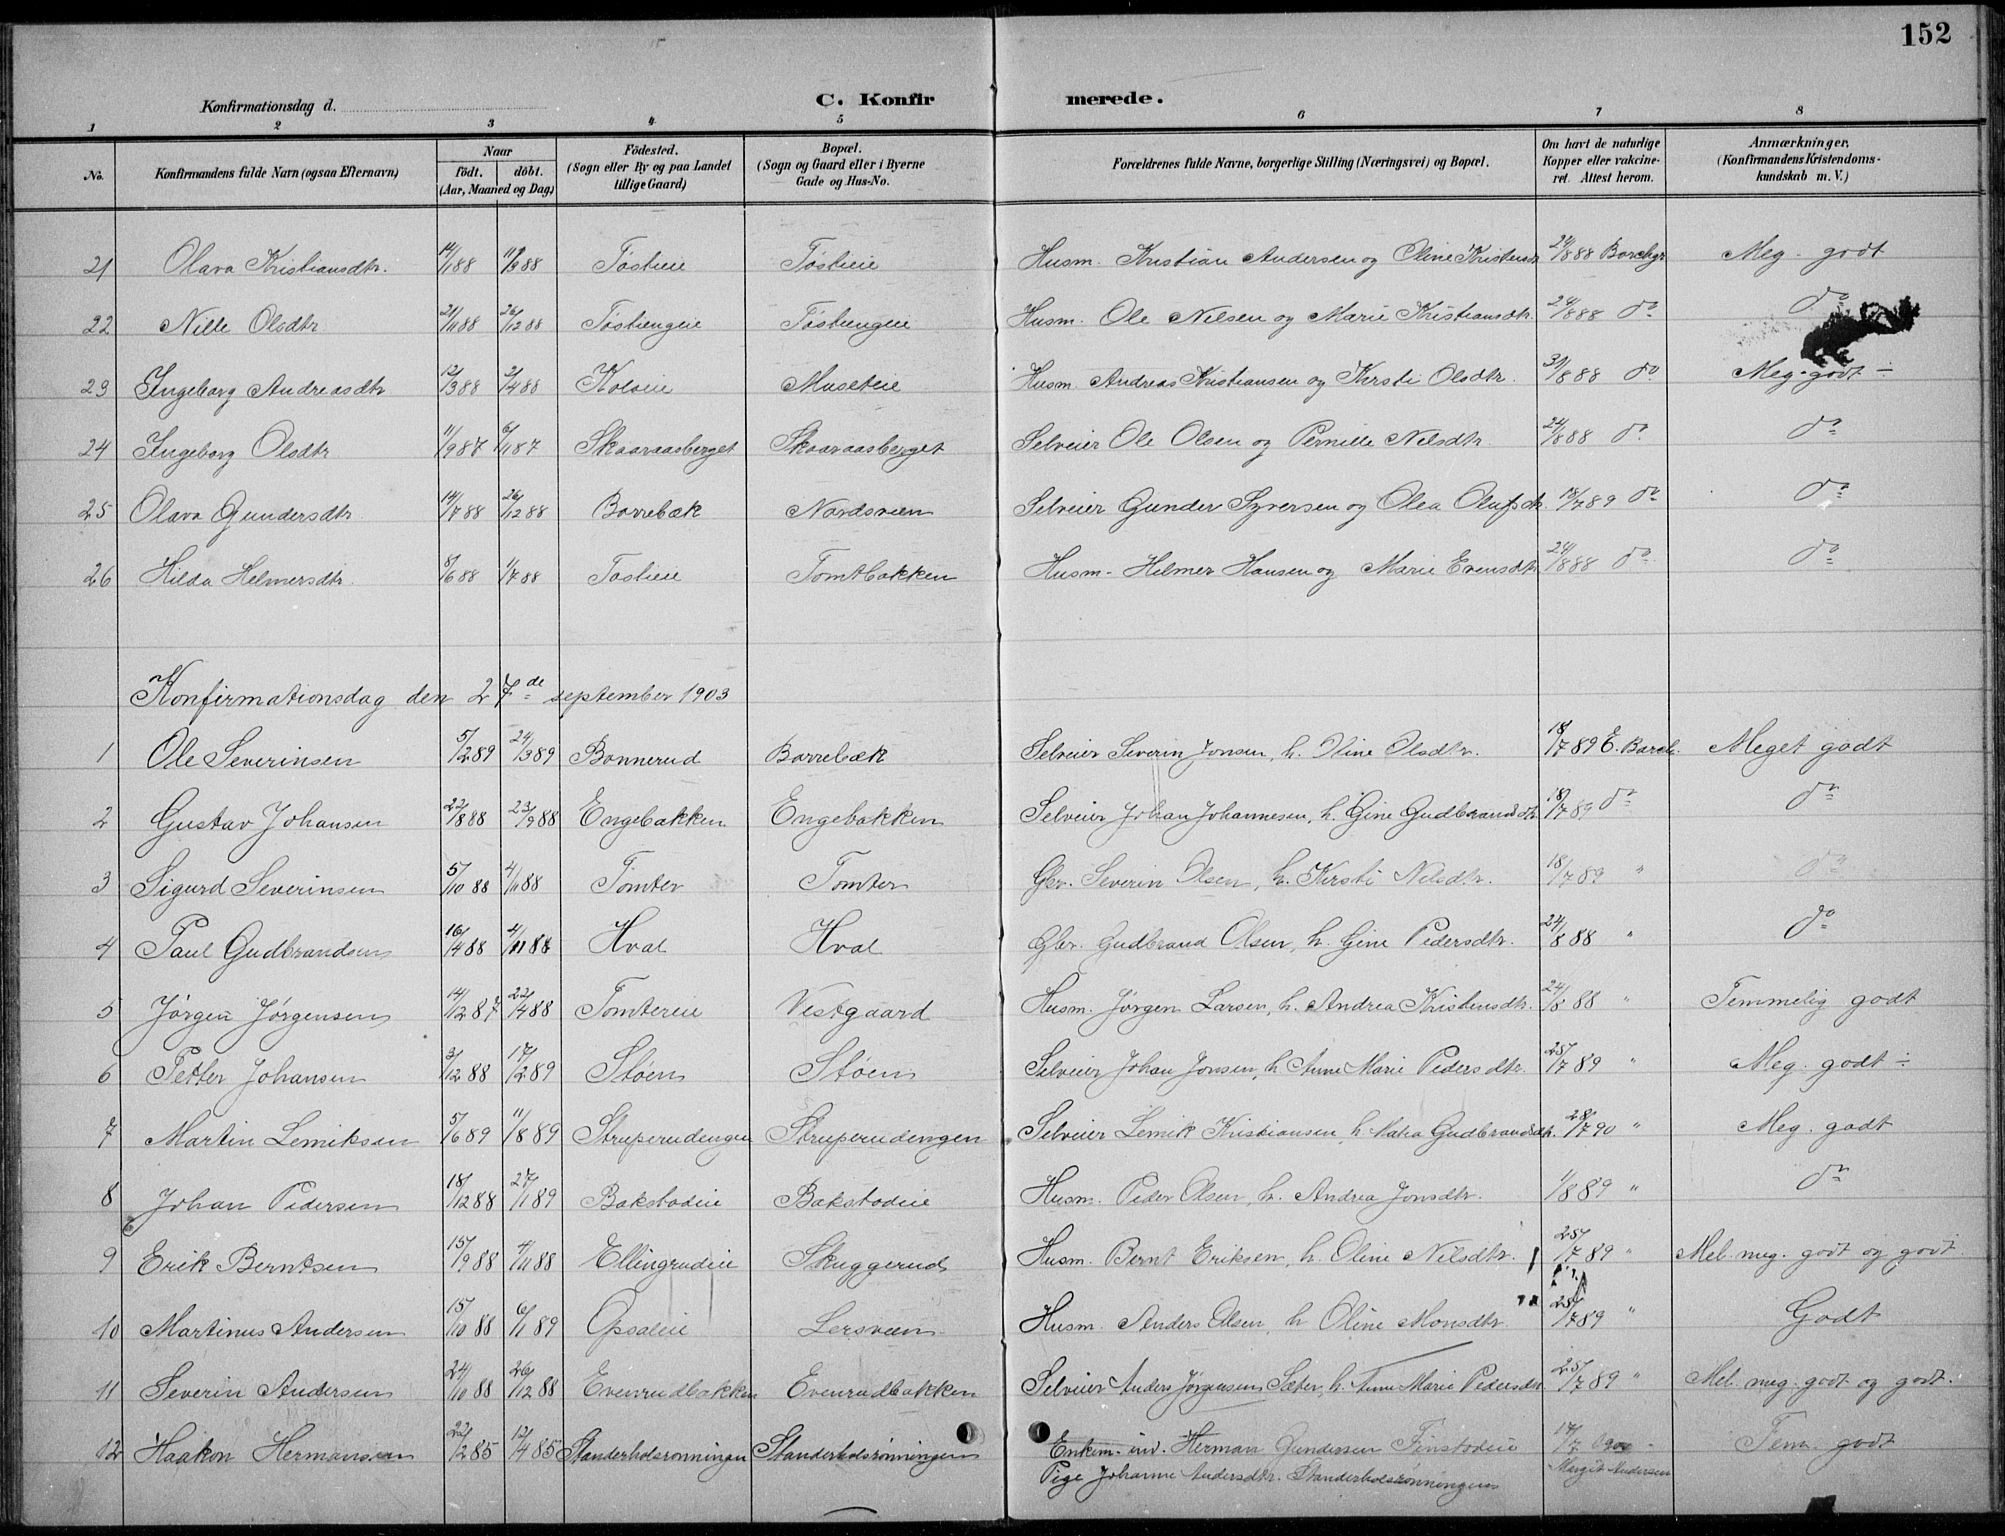 152
Konfirmationsdag d.
C. Konfirmerede.
1 2 3 4 5 6 7 8
No.
Konfirmandens fulde Navn (ogsaa Efternavn)
Naar
födt. döbt.
(Aar, Maaned og Dag)
Födested.
(Sogn eller By og paa Landet
tillige Gaard)
Bopæl.
(Sogn og Gaard eller i Byerne
Gade og Hus-No.
Forældrenes fulde Navne, borgerlige Stilling (Næringsvei) og Bopæl.
Om havt de naturlige
Kopper eller vakcine-
ret. Attest herom.
Anmærkninger.
(Konfirmandens Kristendoms-
kundskab m. V.)
21 Olava Kristiansdtr. 14/1 88 11/3 88 Tösteie Tösteie Husm. Kristian Andersen og Oline Kristensdtr 24/8 88 Borchgr Meg. godt
22 Nille Olsdtr 21/11 88 26/12 88 Töstengeie Töstengeie Husm. Ole Nilsen og Marie Kristiansdtr. 24/8 88 do do
23 Ingeborg Andreasdtr 12/3 88 2/4 88 Kolseie Museteie Husm. Andreas Kristiansen og Kirsti Olsdtr. 31/8 88 do Meg. godt ÷
24 Ingeborg Olsdtr 11/9 87 6/11 87 Skaaraasberget Skaaraasberget Selveier Ole Olsen og Pernille Nilsdtr. 24/8 88 do do
25 Olava Gundersdtr 14/7 88 26/12 88 Borrebæk Nordsveen Selveier Gunder Syversen og Olea Olufsdtr. 18/7 89 do do
26 Hilda Helmersdtr. 8/6 88 1/7 88 Tosteie Tomtbakken Husm. Helmer Hansen og Marie Evensdtr 24/8 88 do do
Konfirmationsdag den 27de september 1903
1 Ole Severinsen 5/2 89 24/3 89 Bonnerud Borrebæk Selveier Severin Jonsen, h. Oline Olsdtr. 18/7 89 E. Borch. Meget godt
2 Gustav Johansen 22/8 88 23/9 88 Engebakken Engebakken Selveier Johan Johannesen, h. Gine Gudbrandsdtr 18/7 89 do do
3 Sigurd Severinsen 5/10 88 4/11 88 Tomter Tomter Gbr. Severin Olsen, h. Kirsti Nilsdtr. 18/7 89 " do
4 Paul Gudbrandsen 16/4 88 4/11 88 Hval Hval Gbr. Gudbrand Olsen, h. Gine Pedersdtr. 24/8 88 " do
5 Jørgen Jørgensen 14/12 87 22/4 88 Tomtereie Vestgaard Husm. Jörgen Larsen, h. Andrea Kristensdtr. 24/8 88 " Temmelig godt
6 Petter Johansen 3/12 88 17/2 89 Stöen Stöen Selveier Johan Jonsen, h. Anne Marie Pedersdtr. 25/7 89 " Meg. godt ÷
7 Martin Lemiksen 5/6 89 11/8 89 Struperudengen Struperudengen Selveier Lemik Kristiansen, h. Gudbrandsdtr. 28/7 90 " Meg. godt
8 Johan Pedersen 18/12 88 27/1 89 Bakstodeie Bakstodeie Husm. Peder Olsen, h. Andrea Jonsdtr. 1/8 89 " do
9 Erik Berntsen 15/9 88 4/11 88 Ellingrudeie Skuggerud Husm. Bernt Eriksen, h. Oline Nilsdtr. 25/7 89 " Mel. meg. godt og godt
10 Martinus Andersen 15/10 88 6/1 89 Opsaleie Lersveen Husm. Anders Olsen, h. Oline Monsdtr. 25/7 89 " Godt
11 Severin Andersen 24/10 88 26/12 88 Evenrudbakken Evenrudbakken Selveier Anders Jörgensen Sæter, h. Anne Marie Pedersdtr 25/7 89 " Mel. meg. godt og godt.
12 Haakon Hermansen 22/2 85 12/4 85 Standerholsronningen Standerholsrönningen Enkem. inv. Herman Gundersen Finstodeie Tem. godt
Pige Johanne Andersdtr. Standerholsrönningen Margit Andersen